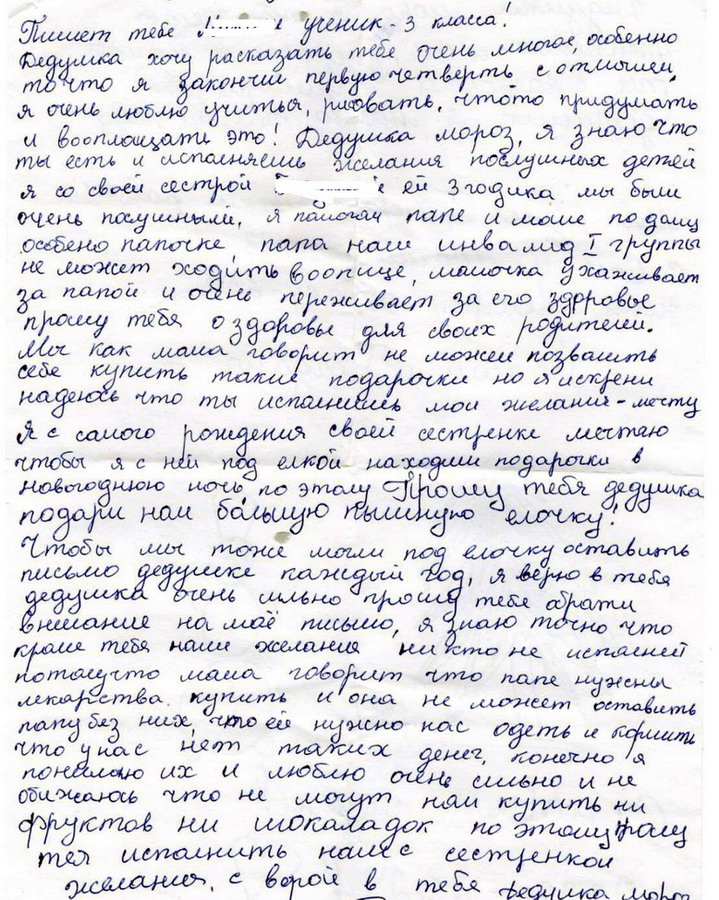 Пишет тебе М е ученик - 3 класса!
Дедушка хочу расказать тебе очень многое, особенно
то что я закончил первую четверть с отличием,
я очень люблю учиться, рисовать, что то придумать
и вооплощать это! Дедушка мороз, я знаю что
ты есть и исполняешь желания послушных детей
я со своей сестрой е ей 3 годика мы были
очень послушными, я помогал папе и маме по дому
особено папочке, папа наш инвалид I группы
не может ходить вообще, мамочка ухаживает
за папой и очень переживает за его здоровье
прошу тебя о здоровье для своих родителей.
Мы как мама говорит не можем позволить
себе купить такие подарочки но я искрени
надеюсь что ты исполнишь мои желания - мечту
Я с самого рождения своей сестренки мечтаю
чтобы я с ней под елкой находили подарочки в
новогоднюю ночь, по этому Прошу тебя дедушка
подари нам большую пышную елочку!
Чтобы мы тоже могли под елочку оставить
письмо дедушке каждый год, я верю в тебя
дедушка очень сильно прошу тебе обрати
внимание на моё письмо, я знаю точно что
кроме тебя наши желания ни кто не исполнит
потомучто мама говорит что папе нужны
лекарства купить и она не может оставить
папу без них, что ей нужно нас одеть и кормить
что у нас нет таких денег, конечно я
понимаю их и люблю очень сильно и не
обижаюсь что не могут нам купить ни
фруктов ни шокаладок по этому прошу
тея исполнить наши с сестренкой
желания, с верой в тебя дедушка мороз